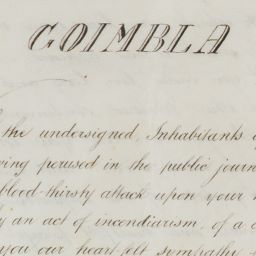 COIMBLA
the undersigned, Inhabitants
perused in the public
blood-thirsty attack upon your
an act of incendiarism, of a
you our heart felt sympathy